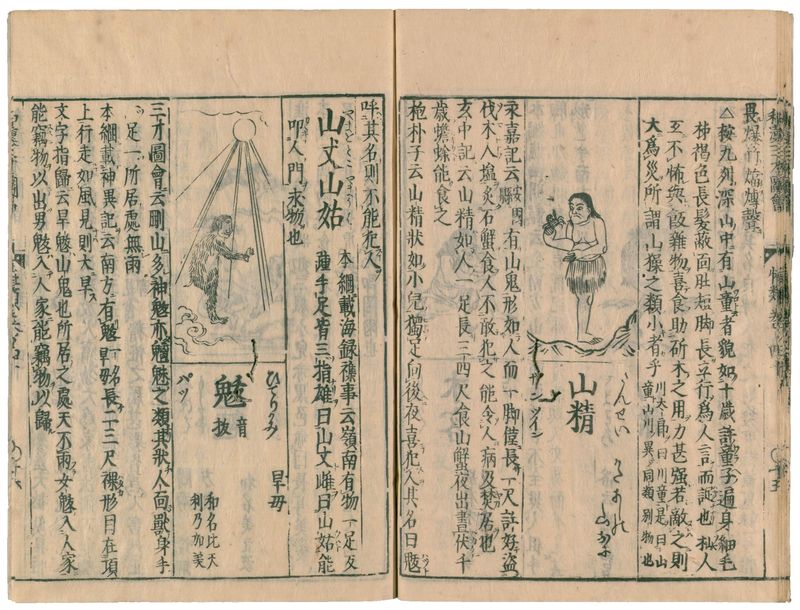 畏爆竹煏聲
△按九州深山中有山童者貌如十歳許童子遍身細毛
柿褐色長髪蔽面肚短脚長立行爲人言而誔也杣人
互不怖與飯雜物喜食助斫木之用力甚强若敵之則
大爲災所謂山𤢖之類小者乎
川太郎曰川童是曰山
童山川異同類別物也
さんせい
山精
サンツイン
永嘉記云安國縣有山鬼形如人而一脚僅長一尺許好盗
伐木人塩炙石蟹食人不敢犯之能令人病及焚居也
玄中記云山精如人一足長三四尺食山蟹夜出晝伏千
歳蟾蜍能食之
抱朴子云山精状如小兒獨足向後夜喜犯人其名曰魃
呼其名則不能犯人
山丈山姑
本綱載海録襍事云嶺南有物一足反
踵手足皆三指雄曰山丈雌曰山姑能
叩人門求物也
ひでりがみ
旱母
和名比天
利乃加美
魃
音
拔
パツ
三才圖會云剛山多神魃亦魑魅之類其狀人面獸身手
足一所居處無雨
本綱載神異記云南方有魃一名旱母長二三尺裸形目在頂
上行走如風見則大旱
文字指歸云旱魃山鬼也所居之處天不雨女魃入人家
能竊物以出男魃入人家能竊物以歸